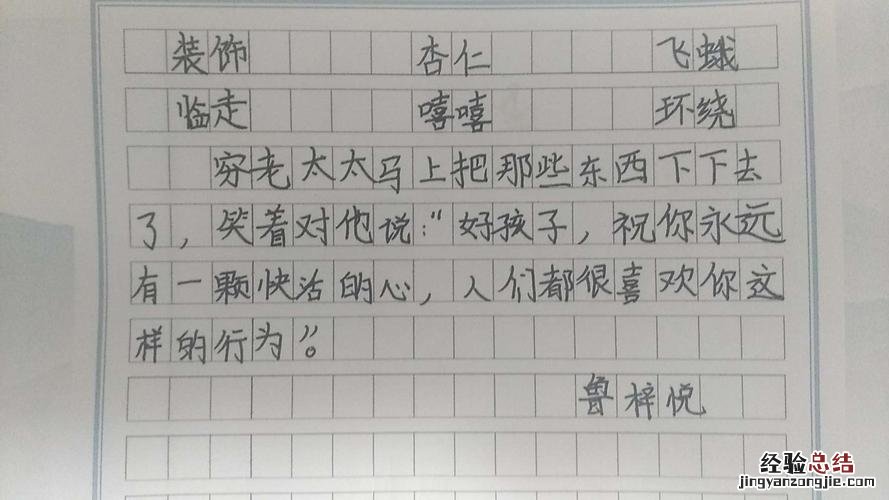 装饰 杏仁 飞蛾
临走 嘻嘻 环绕
穷老太太马上把那些东西下下去
了，笑着对他说：“好孩子，祝你永远
有一颗快活的心，人们都很喜欢你这
样的行为”。
鲁梓悦
经验总结
jingyanzongjie.com